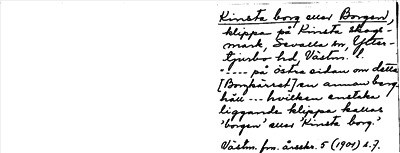 Kinsta borg eller Borgen,
klippa på Kinsta skogs-
mark, Sevalla sn, Ytter-
tjurbo hd, Västm. l.
---- på östra sidan om detta
[Borgkärret] en annan berg
häll --- hvilken enstaka
liggande klippa kallas
'borgen' eller 'Kinsta borg.'
Västm. fm. årsskr. 5 (1909) s. 7.